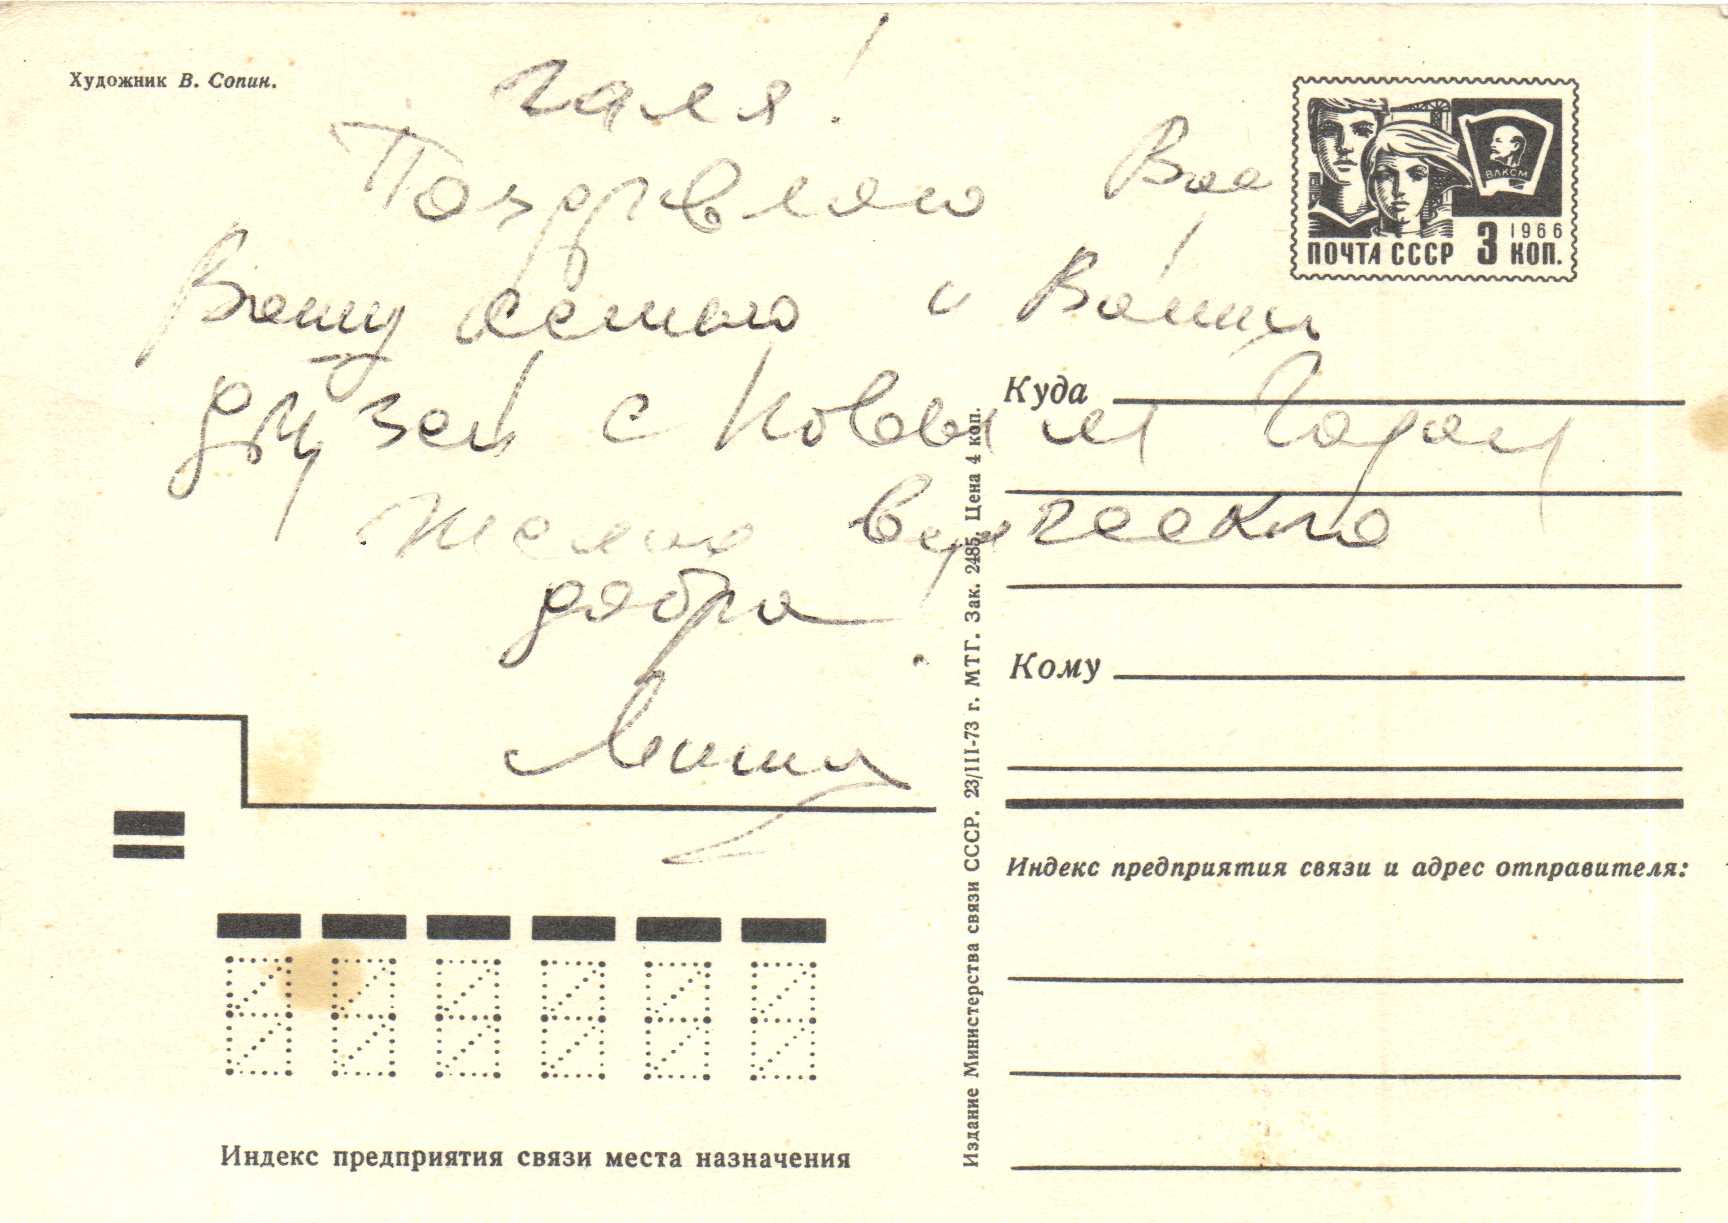 Художник В. Сопин.
Галя!
Поздравляю Вас
Вашу семью и Ваших
друзей с Новым Годом
Желаю всяческого
добра!
Миша
ВЛКСМ
1966
ПОЧТА СССР 3 КОП.
Куда
Кому
Индекс предприятия связи и адрес отправителя:
Издание Министерства связи СССР. 23/III-73 г. МТГ. Зак. 2485. Цена 4 коп.
Индекс предприятия связи места назначения